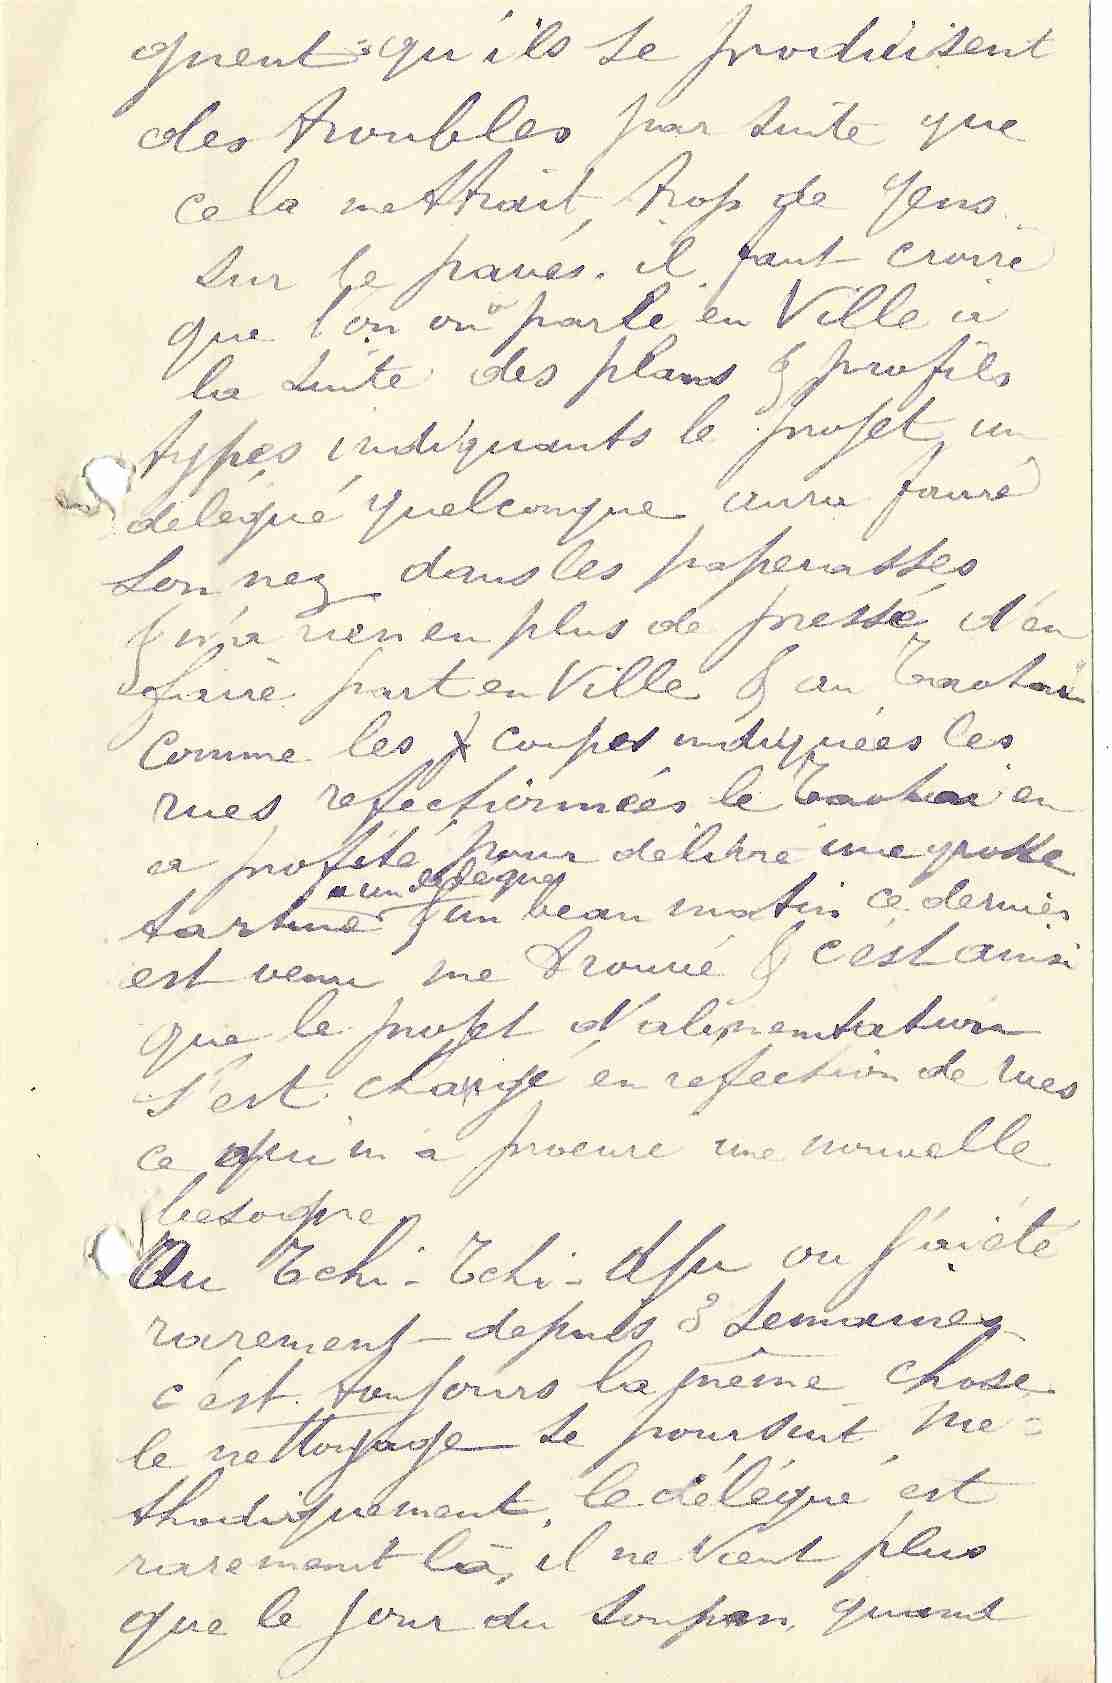 quent qu'ils se produisent
des troubles par suite que
cela mettrait, trop de gens
sur le pavés. il faut croire
que l'on on parlé en Ville à
la suite des plans & profils
types indiquants le projet, un
delégué quelconque aura fouré
son nez dans les paperasses
& n'a rien en plus de pressé, d'en
faire part en Ville & au Taotai
comme les coupes indiquées les
rues refectionnées le Taotai en
a profité pour délibré une grosse
tartine & un beau matin ce dernier
est venu me trouvé & c'est ainsi
que le projet d'alimentation
s'est changé en refection de rues
ce qui m'a procure une nouvelle
besogne
Au Tchi-Tchi-Apu ou j'ai été
rarement depuis 3 semaines
c'est toujours la même chose
le nettoyage se poursuit mé=
thodiquement, le délégué est
rarement là, il ne vient plus
que le jour du soupan, quand